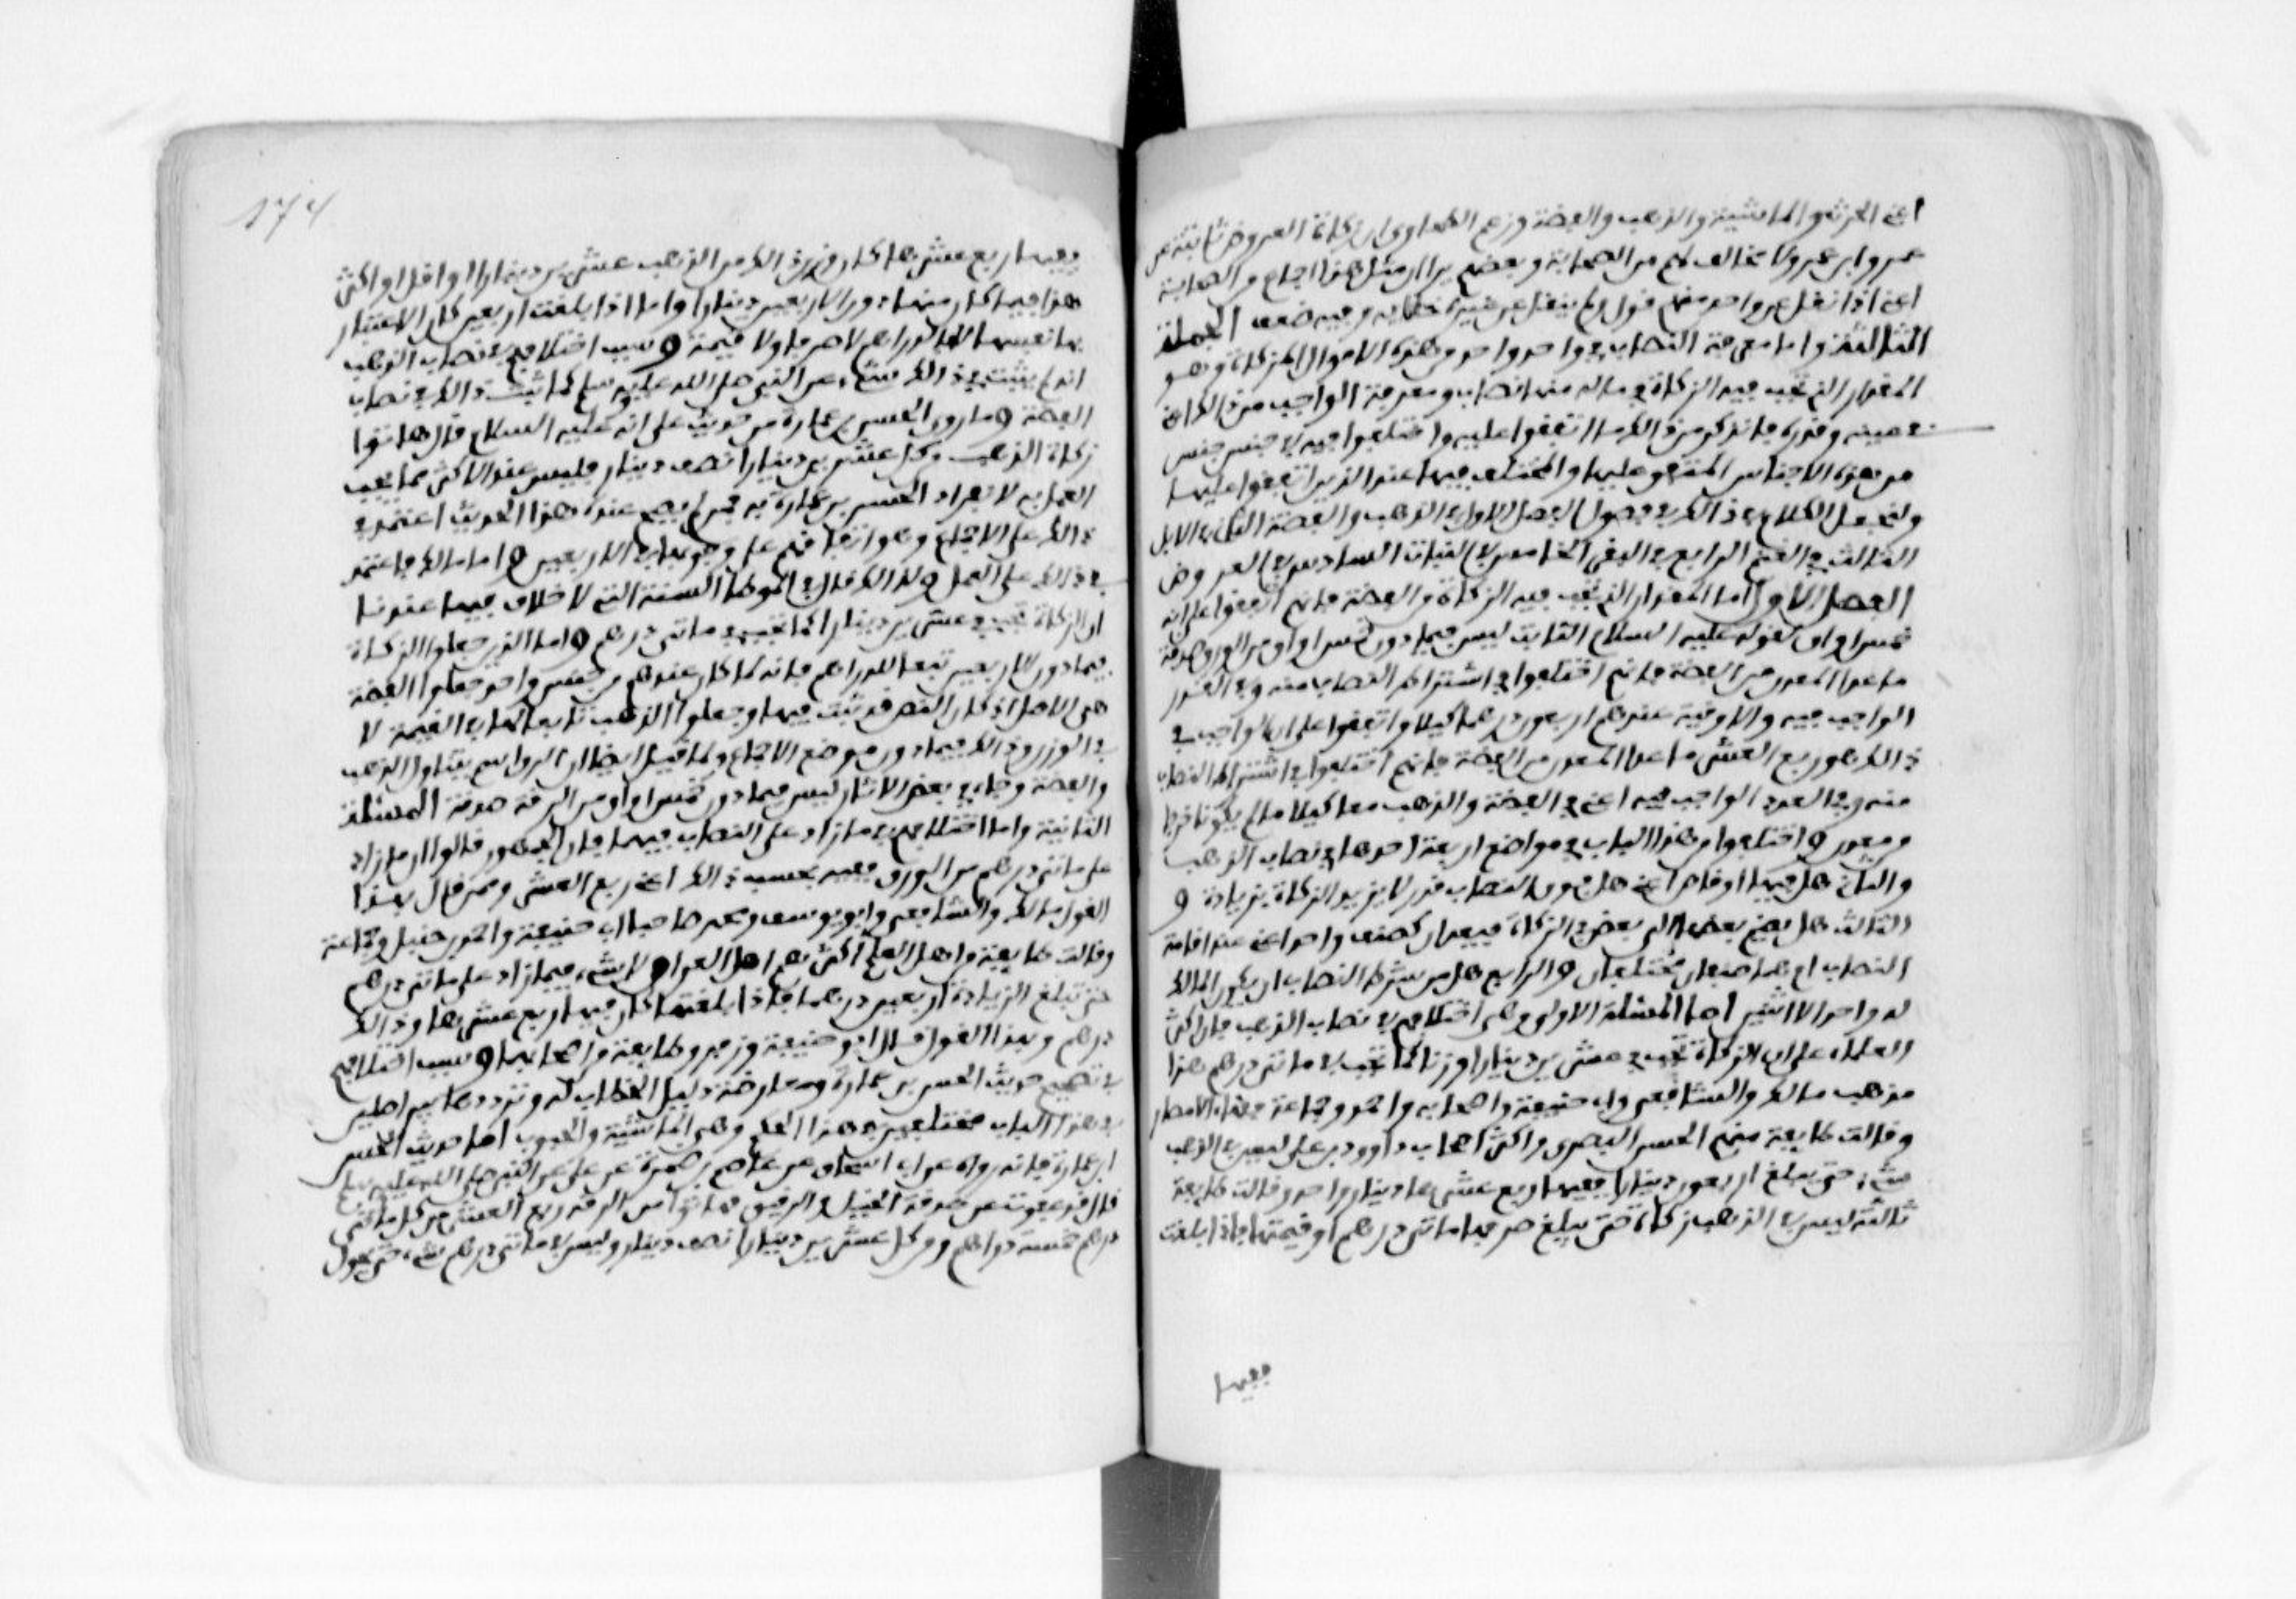 اعني الحرث والماشية والذهب والفضة وزعم الطحاوي ان زكاة العروض ثابتة عن
عمر وابن عمر ولا مخالف لهم من الصحابة وبعضهم يرى ان مثل هذا اجماع من الصحابة
اعني اذا نقل عن واحد منهم قول ولم ينقل عن غيره خلافه وفيه ضعف الجملة
الثالثة واما معرفة النصاب في واحد واحد من هذه الاموال المزكاة وهو
المقدار الذي تجب فيه الزكاة في ما له منها نصاب ومعرفة الواجب من ذلك اعني
في عينه وقدره فانا نذكر من ذلك ما اتفقوا عليه واختلفوا فيه في جنس جنس
من هذه الاجناس المتفق عليها والمختلف فيها عند الذين اتفقوا عليها
ولنجعل الكلام في ذلك في فصول الفصل الاول في الذهب والفضة الثاني في الابل
الثالث في الغنم الرابع في البقر الخامس في النبات السادس في العروض
الفصل الاول اما المقدار الذي تجب فيه الزكاة من الفضة فانهم اتفقوا على انه
خمس اواق لقوله عليه السلام الثابت ليس فيما دون خمس اواق من الورق صدقة
ما عدا المعدن من الفضة فانهم اختلفوا في اشتراط النصاب منه وفي القدر
الواجب فيه والاوقية عندهم اربعون درهما كيلا واتفقوا على ان الواجب في
ذلك هو ربع العشر ما عدا المعدن من الفضة فانهم اختلفوا في اشتراط النصاب
منه وفي القدر الواجب فيه اعني في الفضة والذهب معا كيلا ما لم يكونا خرجا
من معدن واختلفوا من هذا الباب في مواضع اربعة احدها في نصاب الذهب
والثاني هل فيهما اوقاص اعني هل فوق النصاب قدر لا يزيد الزكاة بزيادة و
الثالث هل يضم بعضها الى بعض في الزكاة فيعدان كصنف واحد اعني عند اقامة
النصاب ام هما صنفان مختلفان والرابع هل من شرط النصاب ان يكون المالك
له واحد لا اثنين اما المسئلة الاولى وهي اختلافهم في نصاب الذهب فان اكثر
العلماء على ان الزكاة تجب في عشرين دينارا وزنا كما تجب في مائتي درهم هذا
مذهب مالك والشافعي وابي حنيفة واصحابه واحمد وجماعة فقهاء الامصار
وقالت طايفة منهم الحسن البصري واكثر اصحاب داوود بن علي ليس في الذهب
شيء حتى يبلغ اربعون دينارا ففيها ربع عشرها دينار واحد وقالت طايفة
ثالثة ليس في الذهب زكاة حتى يبلغ صرفها مائتي درهم او قيمتها فاذا بلغت
ففيها
174
ففيها ربع عشرها كان وزن ذلك من الذهب عشرين دينارا او اقل او اكثر
هذا فيما كان منها دون الاربعين دينارا واما اذا بلغت اربعين كان الاعتبار
بها نفسها لا بالدراهم لا صرفا ولا قيمة وسبب اختلافهم في نصاب الذهب
انه لم يثبت في ذلك شيء عن النبي صلى الله عليه وسلم كما ثبت ذلك في نصاب
الفضة وما روى الحسن بن عمارة من حديث علي انه عليه السلام قال هاتوا
زكاة الذهب من كل عشرين دينارا نصف دينار فليس عند الاكثر مما يجب
العمل به لانفراد الحسن بن عمارة به فمن لم يصح عنده هذا الحديث اعتمد في
ذلك على الاجماع وهو اتفاقهم على وجوبها في الاربعين واما مالك فاعتمد
في ذلك على العمل ولذلك قال في الموطا السنة التي لا خلاف فيها عندنا
ان الزكاة تجب في عشرين دينارا كما تجب في مائتي درهم واما الذين جعلوا الزكاة
فيما دون الاربعين تبعا للدراهم فانه لما كان عندهم من جنس واحد جعلوا الفضة
هي الاصل اذ كان النص قد ثبت فيها وجعلوا الذهب تابعا لها في القيمة لا
في الوزن وذلك فيما دون موضع الاجماع ولما قيل ايضا ان الرقة اسم يتناول الذهب
والفضة وجاء في بعض الاثار ليس فيما دون خمس اواق من الرقة صدقة المسئلة
الثانية واما اختلافهم في ما زاد على النصاب فيهما فان الجمهور قالوا ان ما زاد
على مائتي درهم من الورق ففيه بحسب ذلك اعني ربع العشر وممن قال بهذا
القول مالك والشافعي وابو يوسف ومحمد صاحبا ابي حنيفة واحمد بن حنبل وجماعة
وقالت طايفة من اهل العلم اكثرهم اهل العراق لا شيء فيما زاد على مائتي درهم
حتى تبلغ الزيادة اربعين درهما فاذا بلغتها كان فيها ربع عشرها وذلك
درهم وبهذا القول قال ابو حنيفة وزفر وطايفة من اصحابهما وسبب اختلافهم
في تصحيح حديث الحسن بن عمارة ومعارضة دليل الخطاب له وترددها بين اصلين
في هذا الباب مختلفين في هذا الحكم وهي الماشية والحبوب اما حديث الحسن
ابن عمارة فانه رواه عن ابي اسحاق عن عاصم بن ضمرة عن علي عن النبي صلى الله عليه وسلم
قال قد عفوت عن صدقة الخيل والرقيق فهاتوا من الرقة ربع العشر من كل مائتي
درهم خمسة دراهم ومن كل عشرين دينارا نصف دينار وليس في مائتي درهم شيء حتى يحول